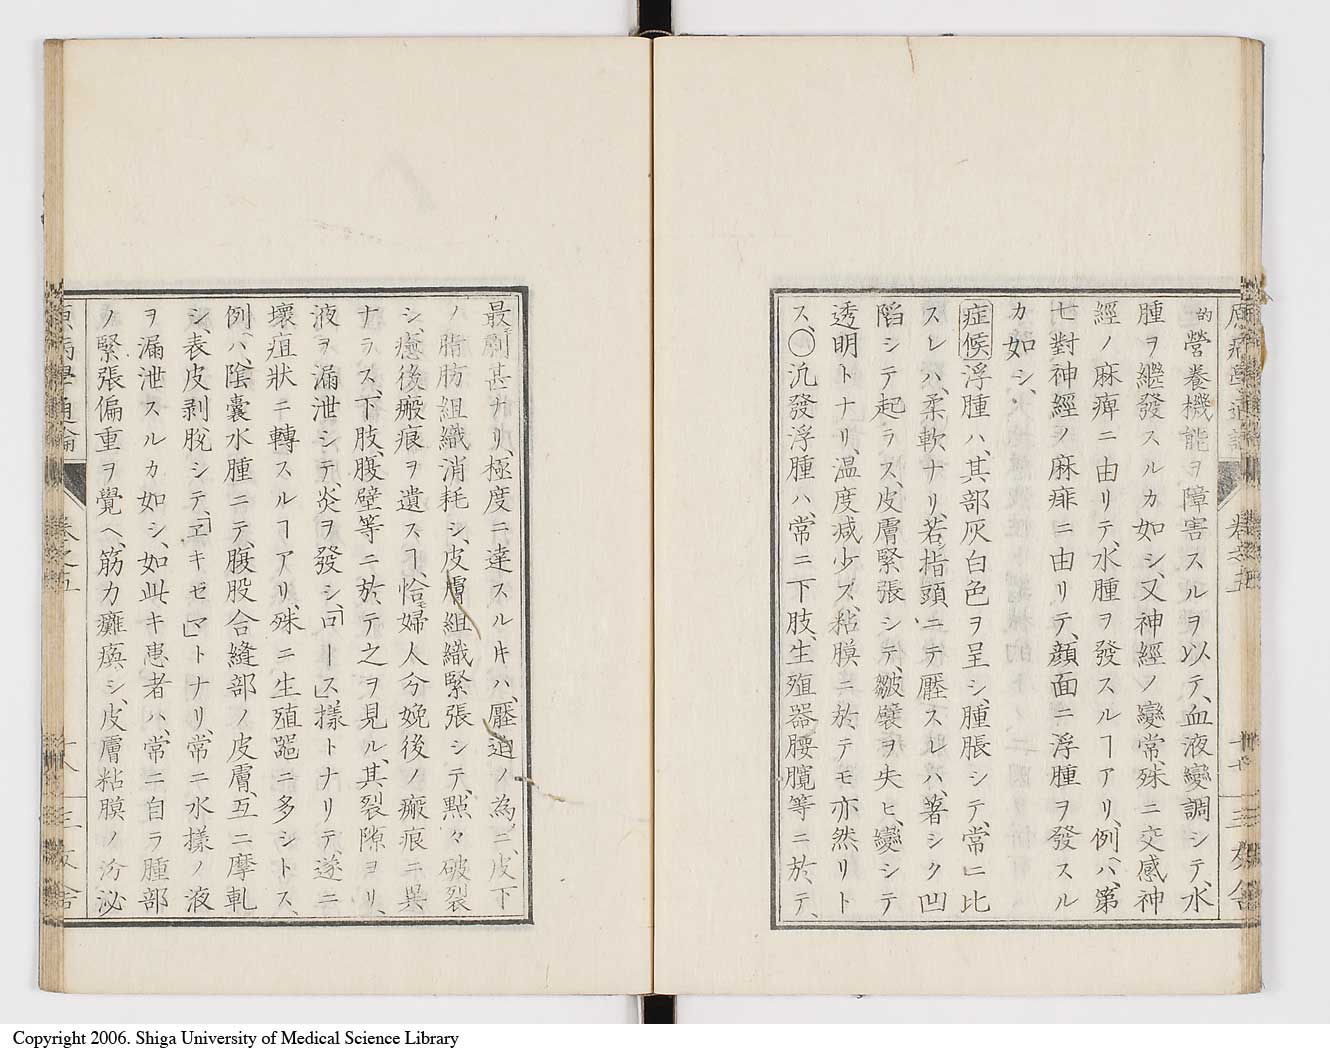 的營養機能ヲ障害スルヲ以テ、血液變調シテ、水
腫ヲ繼發スルカ如シ、又神經ノ變常、殊ニ交感神
經ノ麻痺ニ由リテ、水腫ヲ發スルヿアリ、例ハ、第
七對神經ノ麻痱ニ由リテ、顔面ニ浮腫ヲ發スル
カ如シ、
症候 浮腫ハ、其部灰白色ヲ呈シ、腫脹シテ、常ニ比
スレハ、柔軟ナリ、若指頭ニテ壓スレハ、著シク凹
陷シテ起ラス、皮膚緊張シテ、皺襞ヲ失ヒ、變シテ
透明トナリ、温度减少ス、粘膜ニ於テモ亦然リト
ス、〇汎發浮腫ハ、常ニ下肢、生殖器、腰髖等ニ於テ、
最劇甚ナリ、極度ニ達スル𪜈ハ、壓迫ノ為ニ、皮下
ノ脂肪組織消耗シ、皮膚組織緊張シテ、點々破裂
シ、癒後瘢痕ヲ遺スヿ、恰婦人分娩後ノ瘢痕ニ異
ナラス、下肢、腹壁等ニ於テ之ヲ見ル、其裂隙ヨリ、
液ヲ漏泄シテ、炎ヲ發シ、「ロース」樣トナリテ、遂ニ
壞疽狀ニ轉スルヿアリ、殊ニ生殖器ニ多シトス、
例ハ、陰囊水腫ニテ、腹股合縫部ノ皮膚、互ニ摩軋
シ、表皮剥脫シテ、「ヱキゼマ」トナリ、常ニ水樣ノ液
ヲ漏泄スルカ如シ、如此キ患者ハ、常ニ自ラ腫部
ノ緊張偏重ヲ覺ヘ、筋力癱瘓シ、皮膚粘膜ノ分泌
原病學通論
卷之五
三友舎